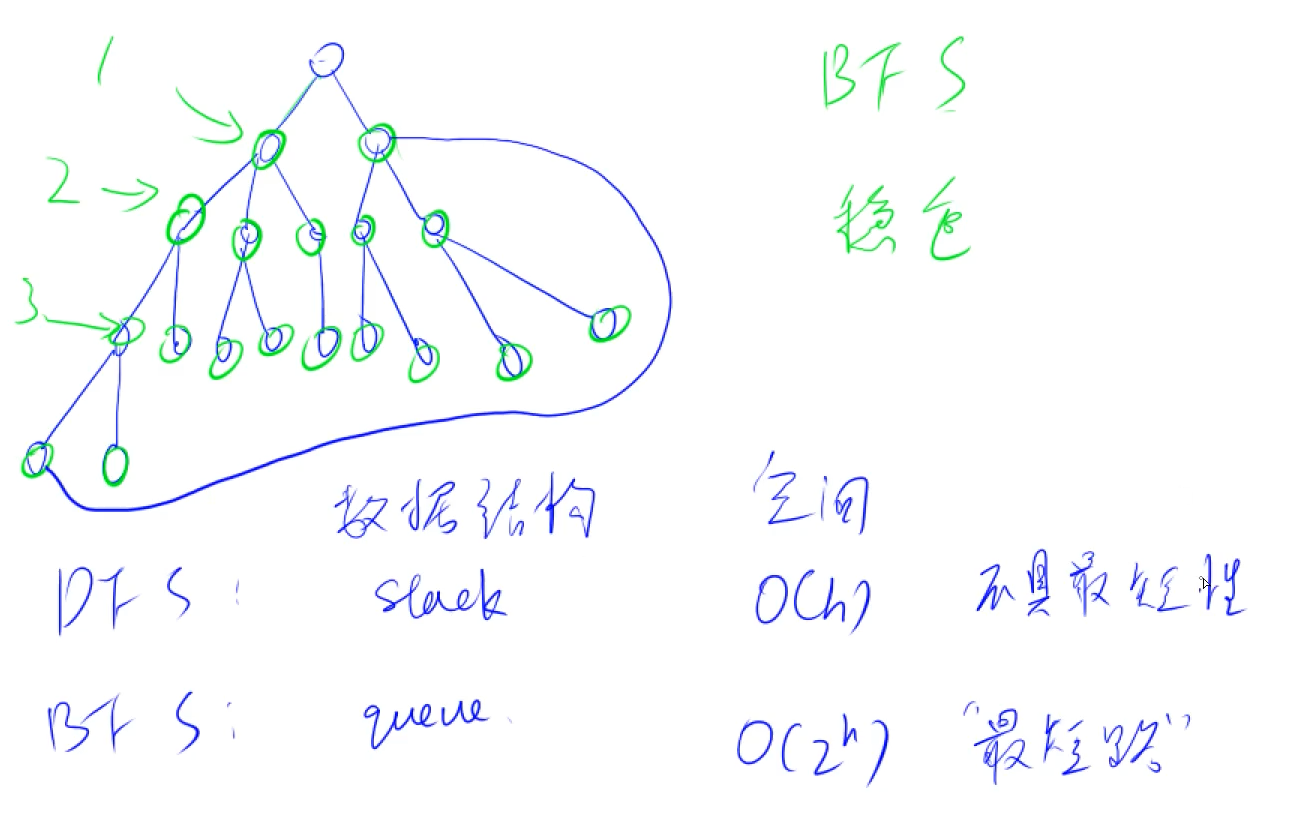 1
BFS
2
稳重
3
数据结构 空间
DFS: stack O(h) 不具最短性
BFS: queue. O(2^h) "最短路"